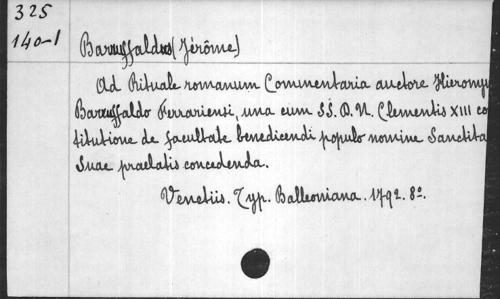 325
140-1
Baruffaldus (Jérôme)
Ad Rituale romanum Commentaria auctore Hieronym
Baruffaldo Ferrariensi, una cum SS. D. N. Clementis XIII co
titutione de facultate benedicendi populo nomine Sanctita
Suae praelatis concedenda.
Venetiis. Typ. Balleoniana. 1792. 8º.